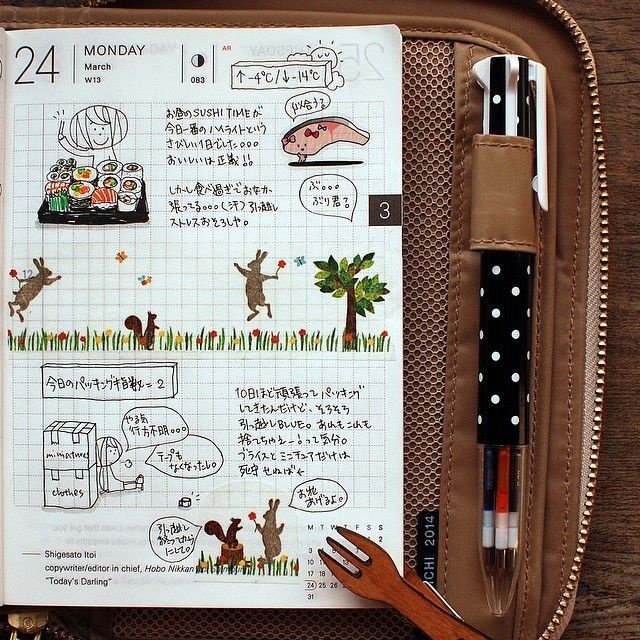 24
MONDAY
March
W13
083
AR
↑-4℃/↓-14℃
お昼のSUSHI TIMEが
今日一番のハイライトという
さびしい1日でした。。。
おいしいは正義!!
しかし食べ過ぎでおなか
張ってる。。。(汗) 引っ越し
ストレスおそろしや。
似合う?
ぶ。。。
ぶり君?
3
12
今日のパッキング指数=2
やる気
行方不明。。。
テープも
なくなったし。
miniatures
clothes
10日ほど頑張ってパッキング
してきたんだけど、そろそろ
引っ越しBLUE。あれもこれも
捨てちゃえー!って気分。
ブライスとミニチュアだけは
死守せねば←
お花
あげるよ。
引っ越し
終ってから
にして。
M T W T F S S
3
10 11
17 18
24 25
31
Shigesato Itoi
copywriter/editor in chief, Hobo Nikkan
"Today's Darling"
ICHI 2014